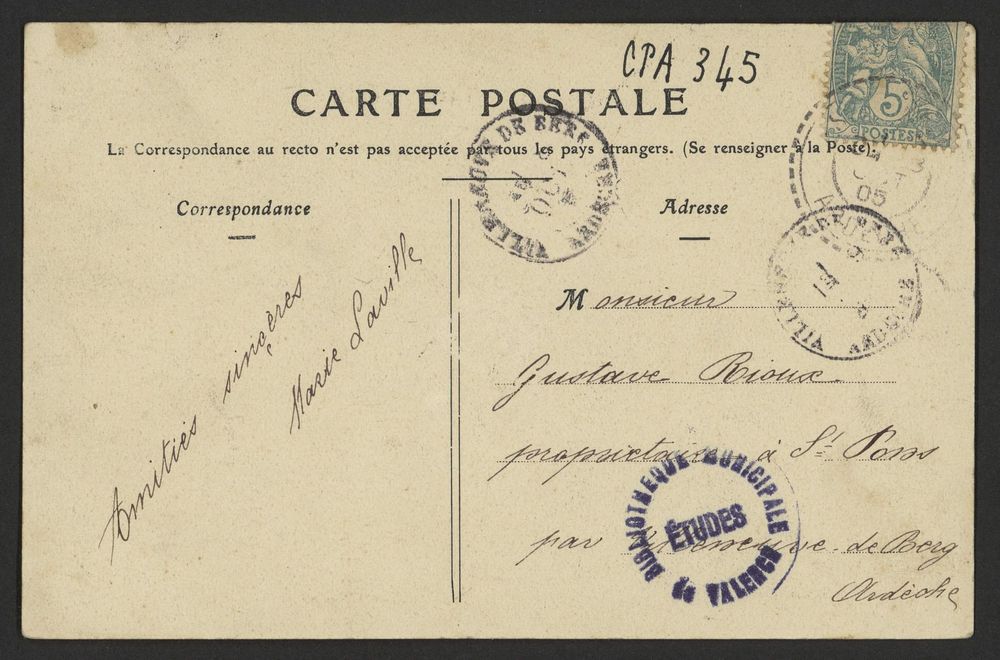 CPA 345
CARTE POSTALE
La Correspondance au recto n'est pas acceptée par tous les pays étrangers. (Se renseigner à la Poste).
5c
POSTES
05
Correspondance
Adresse
Amitiés sincères
Marie Laville
Monsieur
Gustave Rioux
propriétaire à St Pons
par Villeneuve-de-Berg
Ardèche
VILLENEUVE DE BERG
ARDECHE
BIBLIOTHEQUE MUNICIPALE
ÉTUDES
DE VALENCE